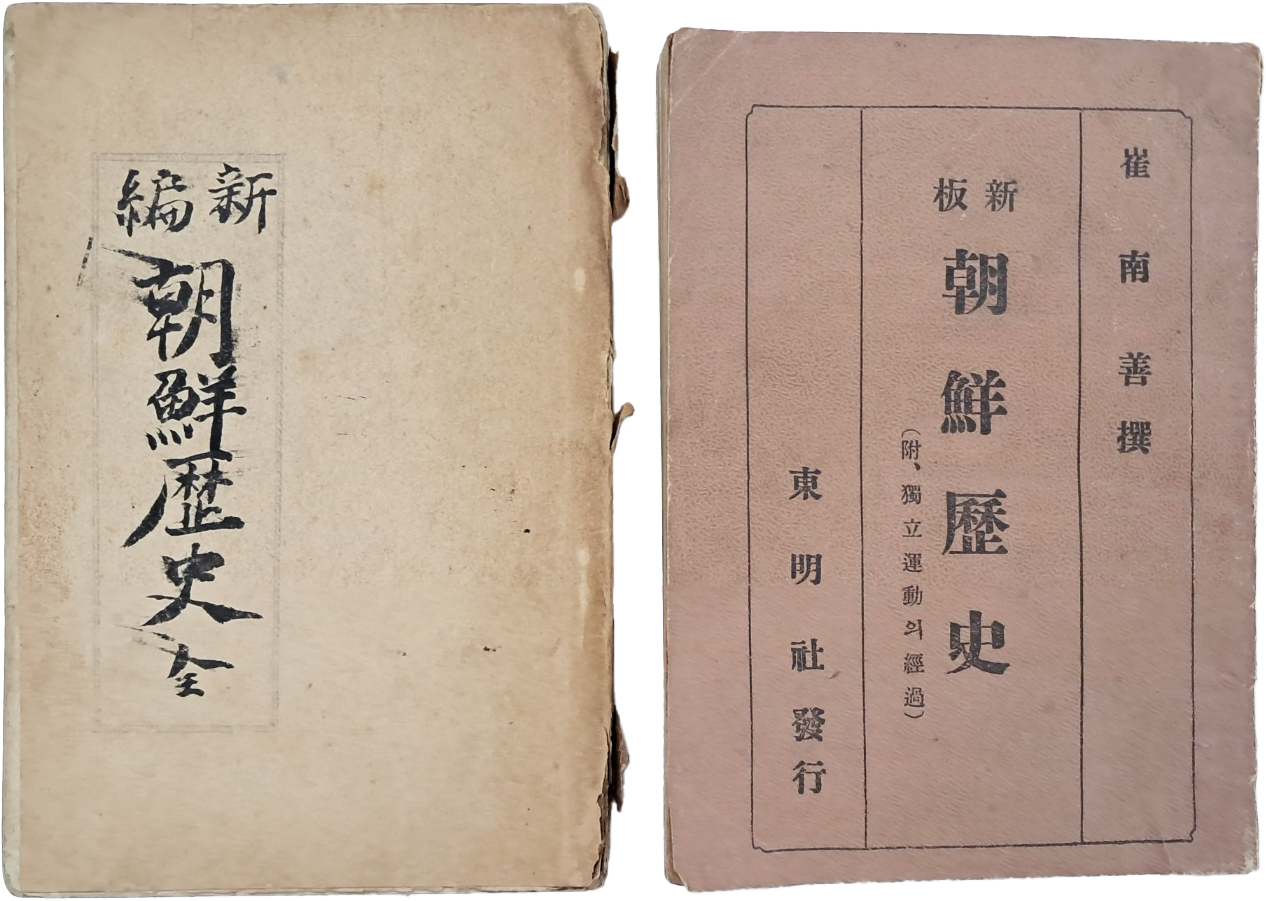 新編
朝鮮歷史
全
崔南善撰
新板
朝鮮歷史
(附、獨立運動의經過)
東明社發行